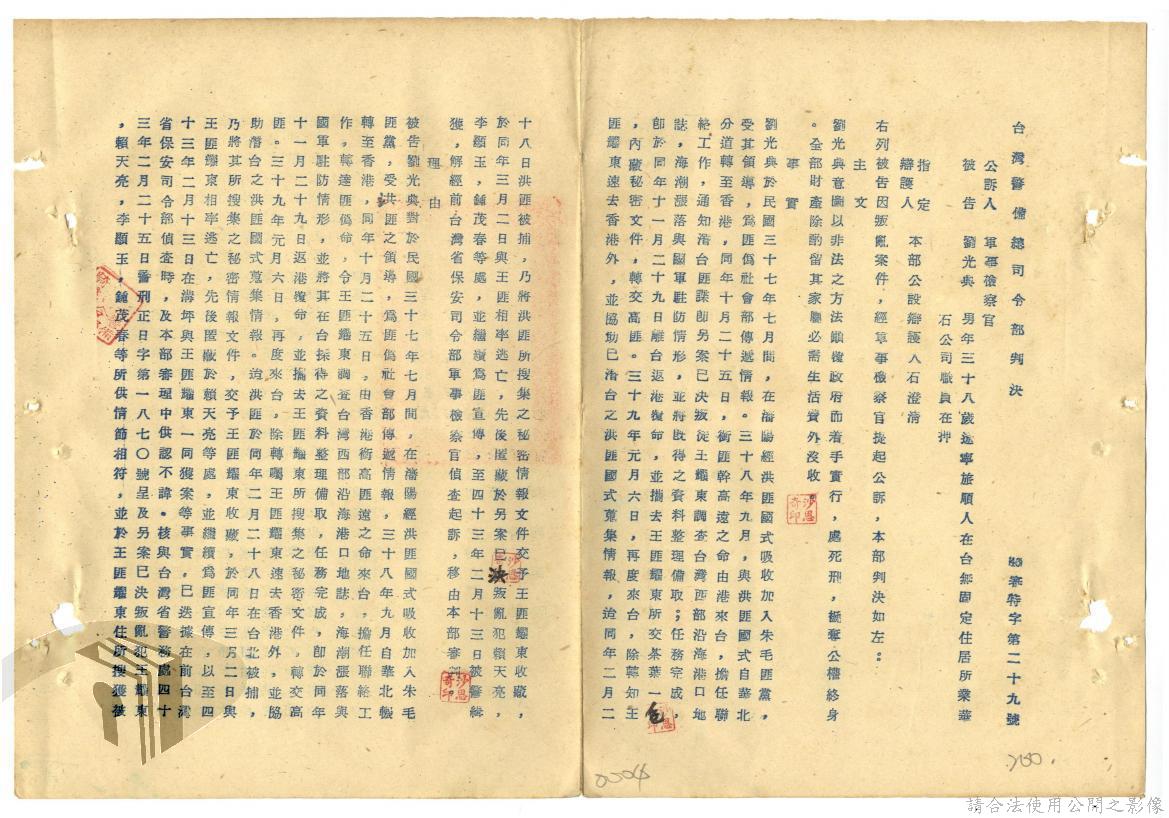 台灣警備總司令部判決
審特字第二十九號
公訴人 軍事檢察官
被告 劉光典 男年三十八歲遼寧旅順人在台無固定住居所業華
石公司職員在押
指定
辯護人 本部公設辯護人石澄清
右列被告因叛亂案件,經軍事檢察官提起公訴,本部判決如左:
主文
劉光典意圖以非法之方法顛覆政府而着手實行,處死刑,褫奪公權終身
。全部財產除酌留其家屬必需生活費外沒收。
事實
劉光典於民國三十七年七月間,在瀋陽經洪匪國式吸收加入朱毛匪黨,
受其領導,爲匪僞社會部傳遞情報。三十八年九月,與洪匪國式自華北
分道轉至香港,同年十月二十五日,銜匪幹高遠之命由港來台,擔任聯
絡工作,通知潛台匪諜即另案已決叛徒王耀東調查台灣西部沿海港口地
誌,海潮漲落與國軍駐防情形,並將既得之資料整理備取;任務完成,
即於同年十一月二十九日離台返港復命,並攜去王匪耀東所交茶葉一包
,內藏秘密文件,轉交高匪。三十九年元月六日,再度來台,除轉知王
匪耀東速去香港外,並協助已潛台之洪匪國式蒐集情報,迨同年二月二
十八日洪匪被捕,乃將洪匪所搜集之秘密情報文件交予王匪耀東收藏,
於同年三月二日與王匪相率逃亡,先後匿藏於另案已決叛亂犯賴天亮,
李顯玉,鍾茂春等處,並繼續爲匪宣傳,至四十三年二月十三日被警緝
獲,解經前台灣省保安司令部軍事檢察官偵查起訴,移由本部審理。
理由
被告劉光典對於民國三十七年七月間,在瀋陽經洪匪國式吸收加入朱毛
匪黨,受洪匪之領導,爲匪僞社會部傳遞情報,三十八年九月自華北輾
轉至香港,同年十月二十五日,由香港銜高匪遠之命來台,擔任聯絡工
作,轉達匪僞命,令王匪耀東調查台灣西部沿海港口地誌,海潮漲落與
國軍駐防情形,並將其在台採待之資料整理備取,任務完成,即於同年
十一月二十九日返港復命,並攜去王匪耀東所搜集之秘密文件,轉交高
匪。三十九年元月六日,再度來台,除轉囑王匪耀東速去香港外,並協
助潛台之洪匪國式蒐集情報。迨洪匪於同年二月二十八日在台北被捕,
乃將其所搜集之秘密情報文件,交予王匪耀東收藏,於同年三月二日與
王匪耀東相率逃亡,先後匿藏於賴天亮等處,並繼續爲匪宣傳,以至四
十三年二月十三日在灣坪與王匪耀東一同獲案等事實,已迭據在前台灣
省保安司令部偵查時,及本部審理中供認不諱。核與台灣省警務處四十
三年二月二十五日警刑正日字第一八七〇號呈及另案已決叛亂犯王耀東
,賴天亮,李顯玉,鍾茂春等所供情節相符,並於王匪耀東住所搜獲被
0004
請合法使用公開之影像